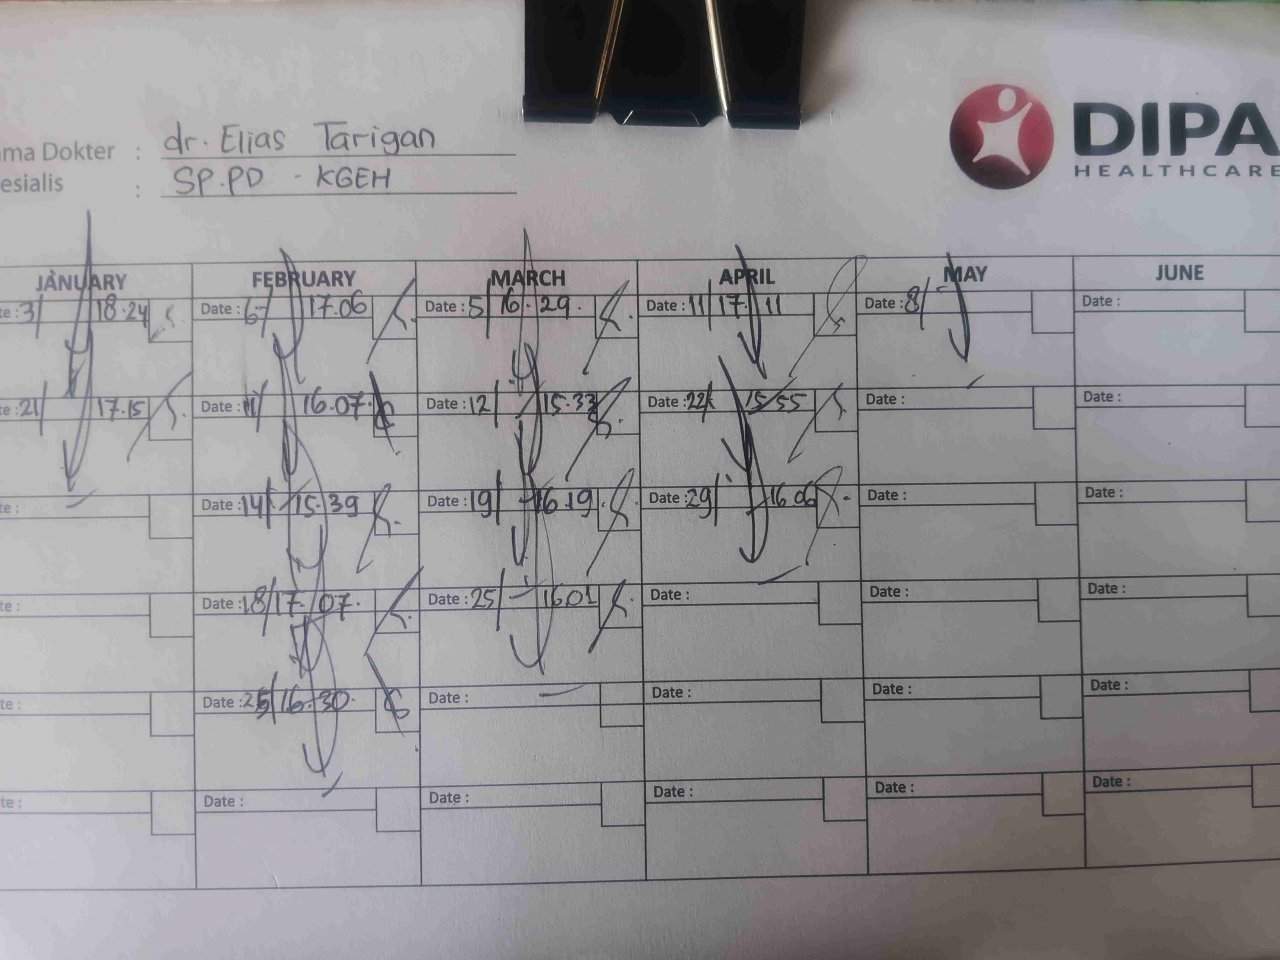 DIPA
HEALTHCARE
ma Dokter : dr. Elias Tarigan
esialis : SP.PD - KGEH
JANUARY FEBRUARY MARCH APRIL MAY JUNE
te : 3/ 18.24 Date : 17.06 Date : 5/ 16.29. Date : 11/ 17.11 Date : 8/ Date :
te : 21/ 17.15 Date : 11/ 16.07. Date : 12/ 15.33 Date : 22/ 15.55 Date : Date :
te : Date : 14/ 15.39 Date : 19/ 16.19 Date : 29/ 16.06 Date : Date :
te : Date : 18/ 17.07. Date : 25/ 16.01 Date : Date : Date :
te : Date : 25/ 16.30. Date : Date : Date : Date :
te : Date : Date : Date : Date : Date :